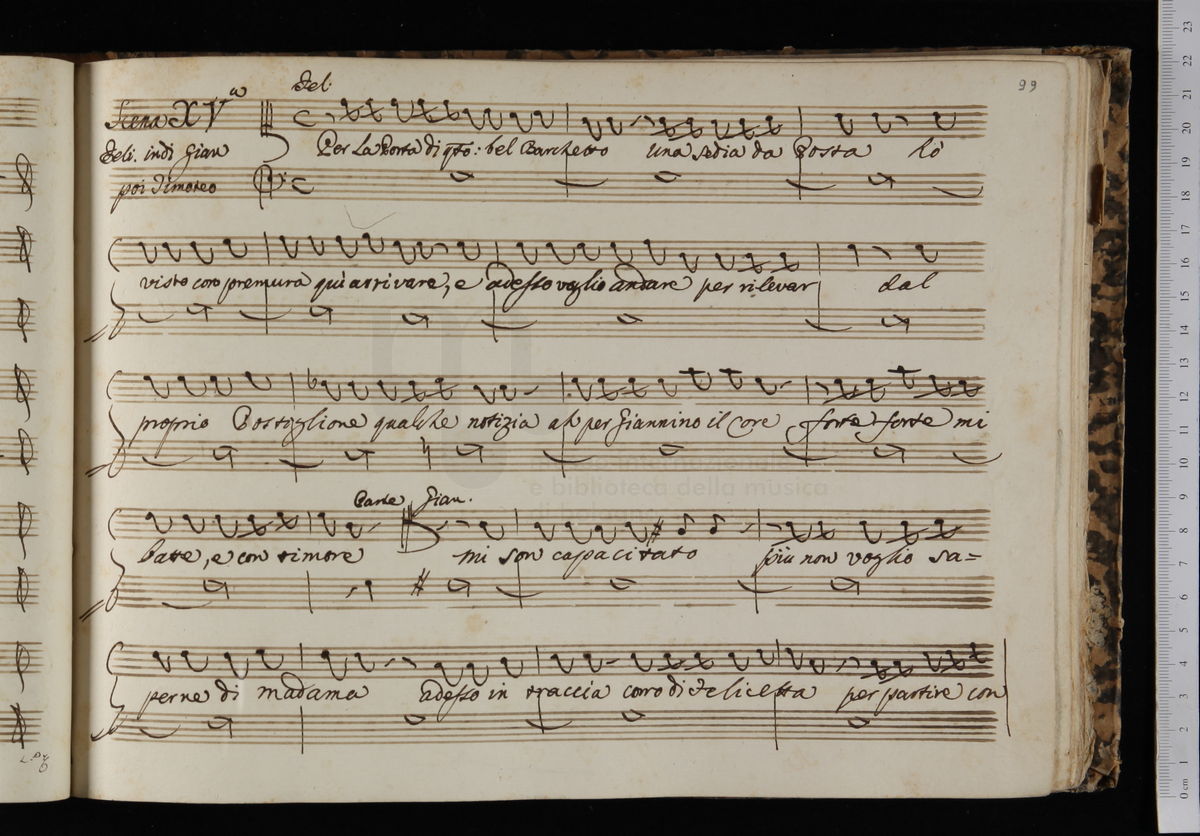 99
Fel.
Scena XVa
Feli. indi Gian
poi Timoteo
Per La Porta di qto: bel Barchetto una sedia da Posta hò
visto con premura quì arrivare, e adesso voglio andare per rilevar dal
proprio Postiglione qualche notizia ah per Giannino il Core forte forte mi
Parte Gian.
batte, e con timore mi son capacitato più non voglio sa=
perne di madama adesso in traccia corro di Felicetta per partire con
e biblioteca della musica